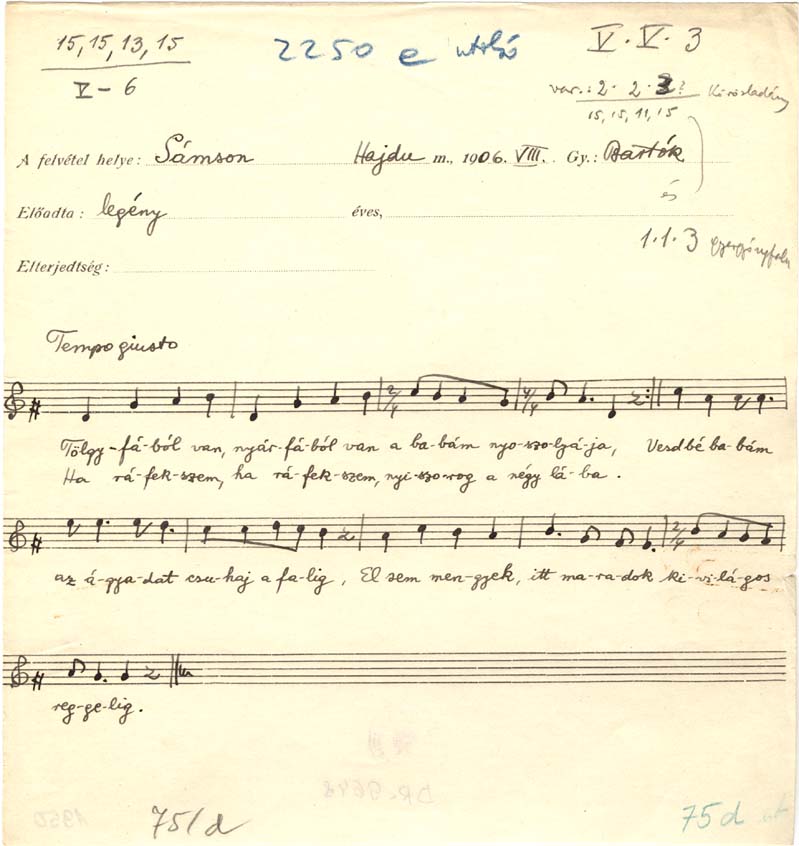 15, 15, 13, 15
V – 6
2250 e utolsó
V. V. 3
var.: 2. 2. 3? Körösladány
15, 15, 11, 15
A felvétel helye: Sámson Hajdu m., 1906. VIII. Gy.: Bartók
és
Előadta: legény éves,
1. 1. 3
Elterjedtség:
Tempo giusto
2/4 4/4
Tölgy-fá-ból van, nyár-fá-ból van a ba-bám nyo-szo-lyá-ja, Vesd bé ba-bám
Ha rá-fek-szem, ha rá-fek-szem, nyi-szo-rog a négy lá-ba.
2/4
az á-gya-dat csu-haj a fa-lig, El sem men-gyek, itt ma-ra-dok ki-vi-lá-gos
reg-ge-lig.
DR. 9648
1950
75/d
75 d